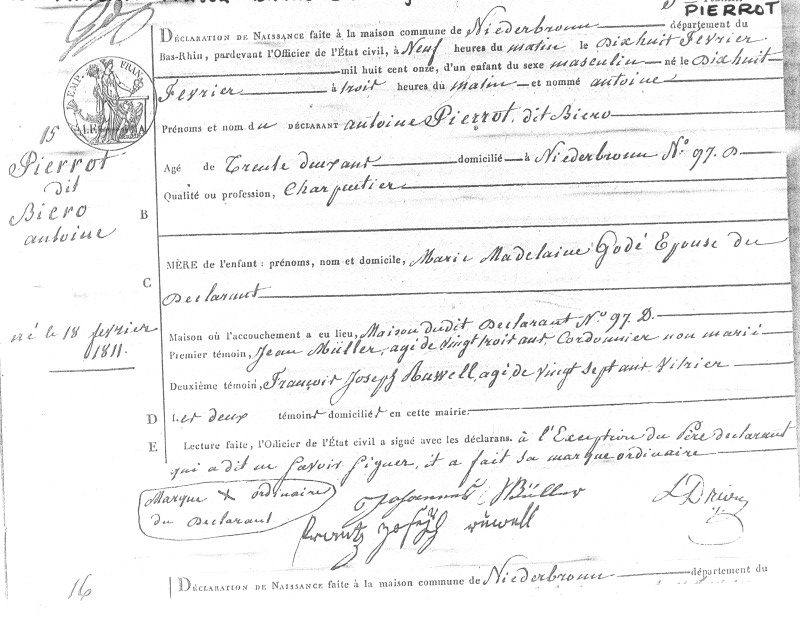 PIERROT
DÉCLARATION DE NAISSANCE faite à la maison commune de Niederbronn département du
Bas-Rhin, pardevant l'Officier de l'État civil, à Neuf heures du matin le Dixhuit Fevrier
mil huit cent onze, d'un enfant du sexe masculin né le Dixhuit
Fevrier à trois heures du matin et nommé antoine
EMP. FRAN.
15
Pierrot
dit
Biero
antoine
Prénoms et nom du DÉCLARANT antoine Pierrot, dit Biero
Agé de Trente deux ans domicilié à Niederbronn No. 97. D
Qualité ou profession, Charpentier
B
MÈRE de l'enfant : prénoms, nom et domicile, Marie Madelaine Godé Epouse du
C
Declarant
né le 18 fevrier
1811.
Maison où l'accouchement a eu lieu, Maison dudit Declarant No. 97 D.
Premier témoin, Jean Müller, agé de vingt trois ans Cordonnier non marié
Deuxième témoin, François Joseph Ruwell, agé de vingt sept ans Vitrier
D Les deux témoins domiciliés en cette mairie.
E Lecture faite, l'Officier de l'État civil a signé avec les déclarans. à l'Exeption du Père declarant
qui a dit ne savoir signer, it a fait sa marque ordinaire
Marque + ordinaire
du Declarant
Johannes Müller
frantz Joseph ruwell
16
DÉCLARATION DE NAISSANCE faite à la maison commune de Niederbronn département du